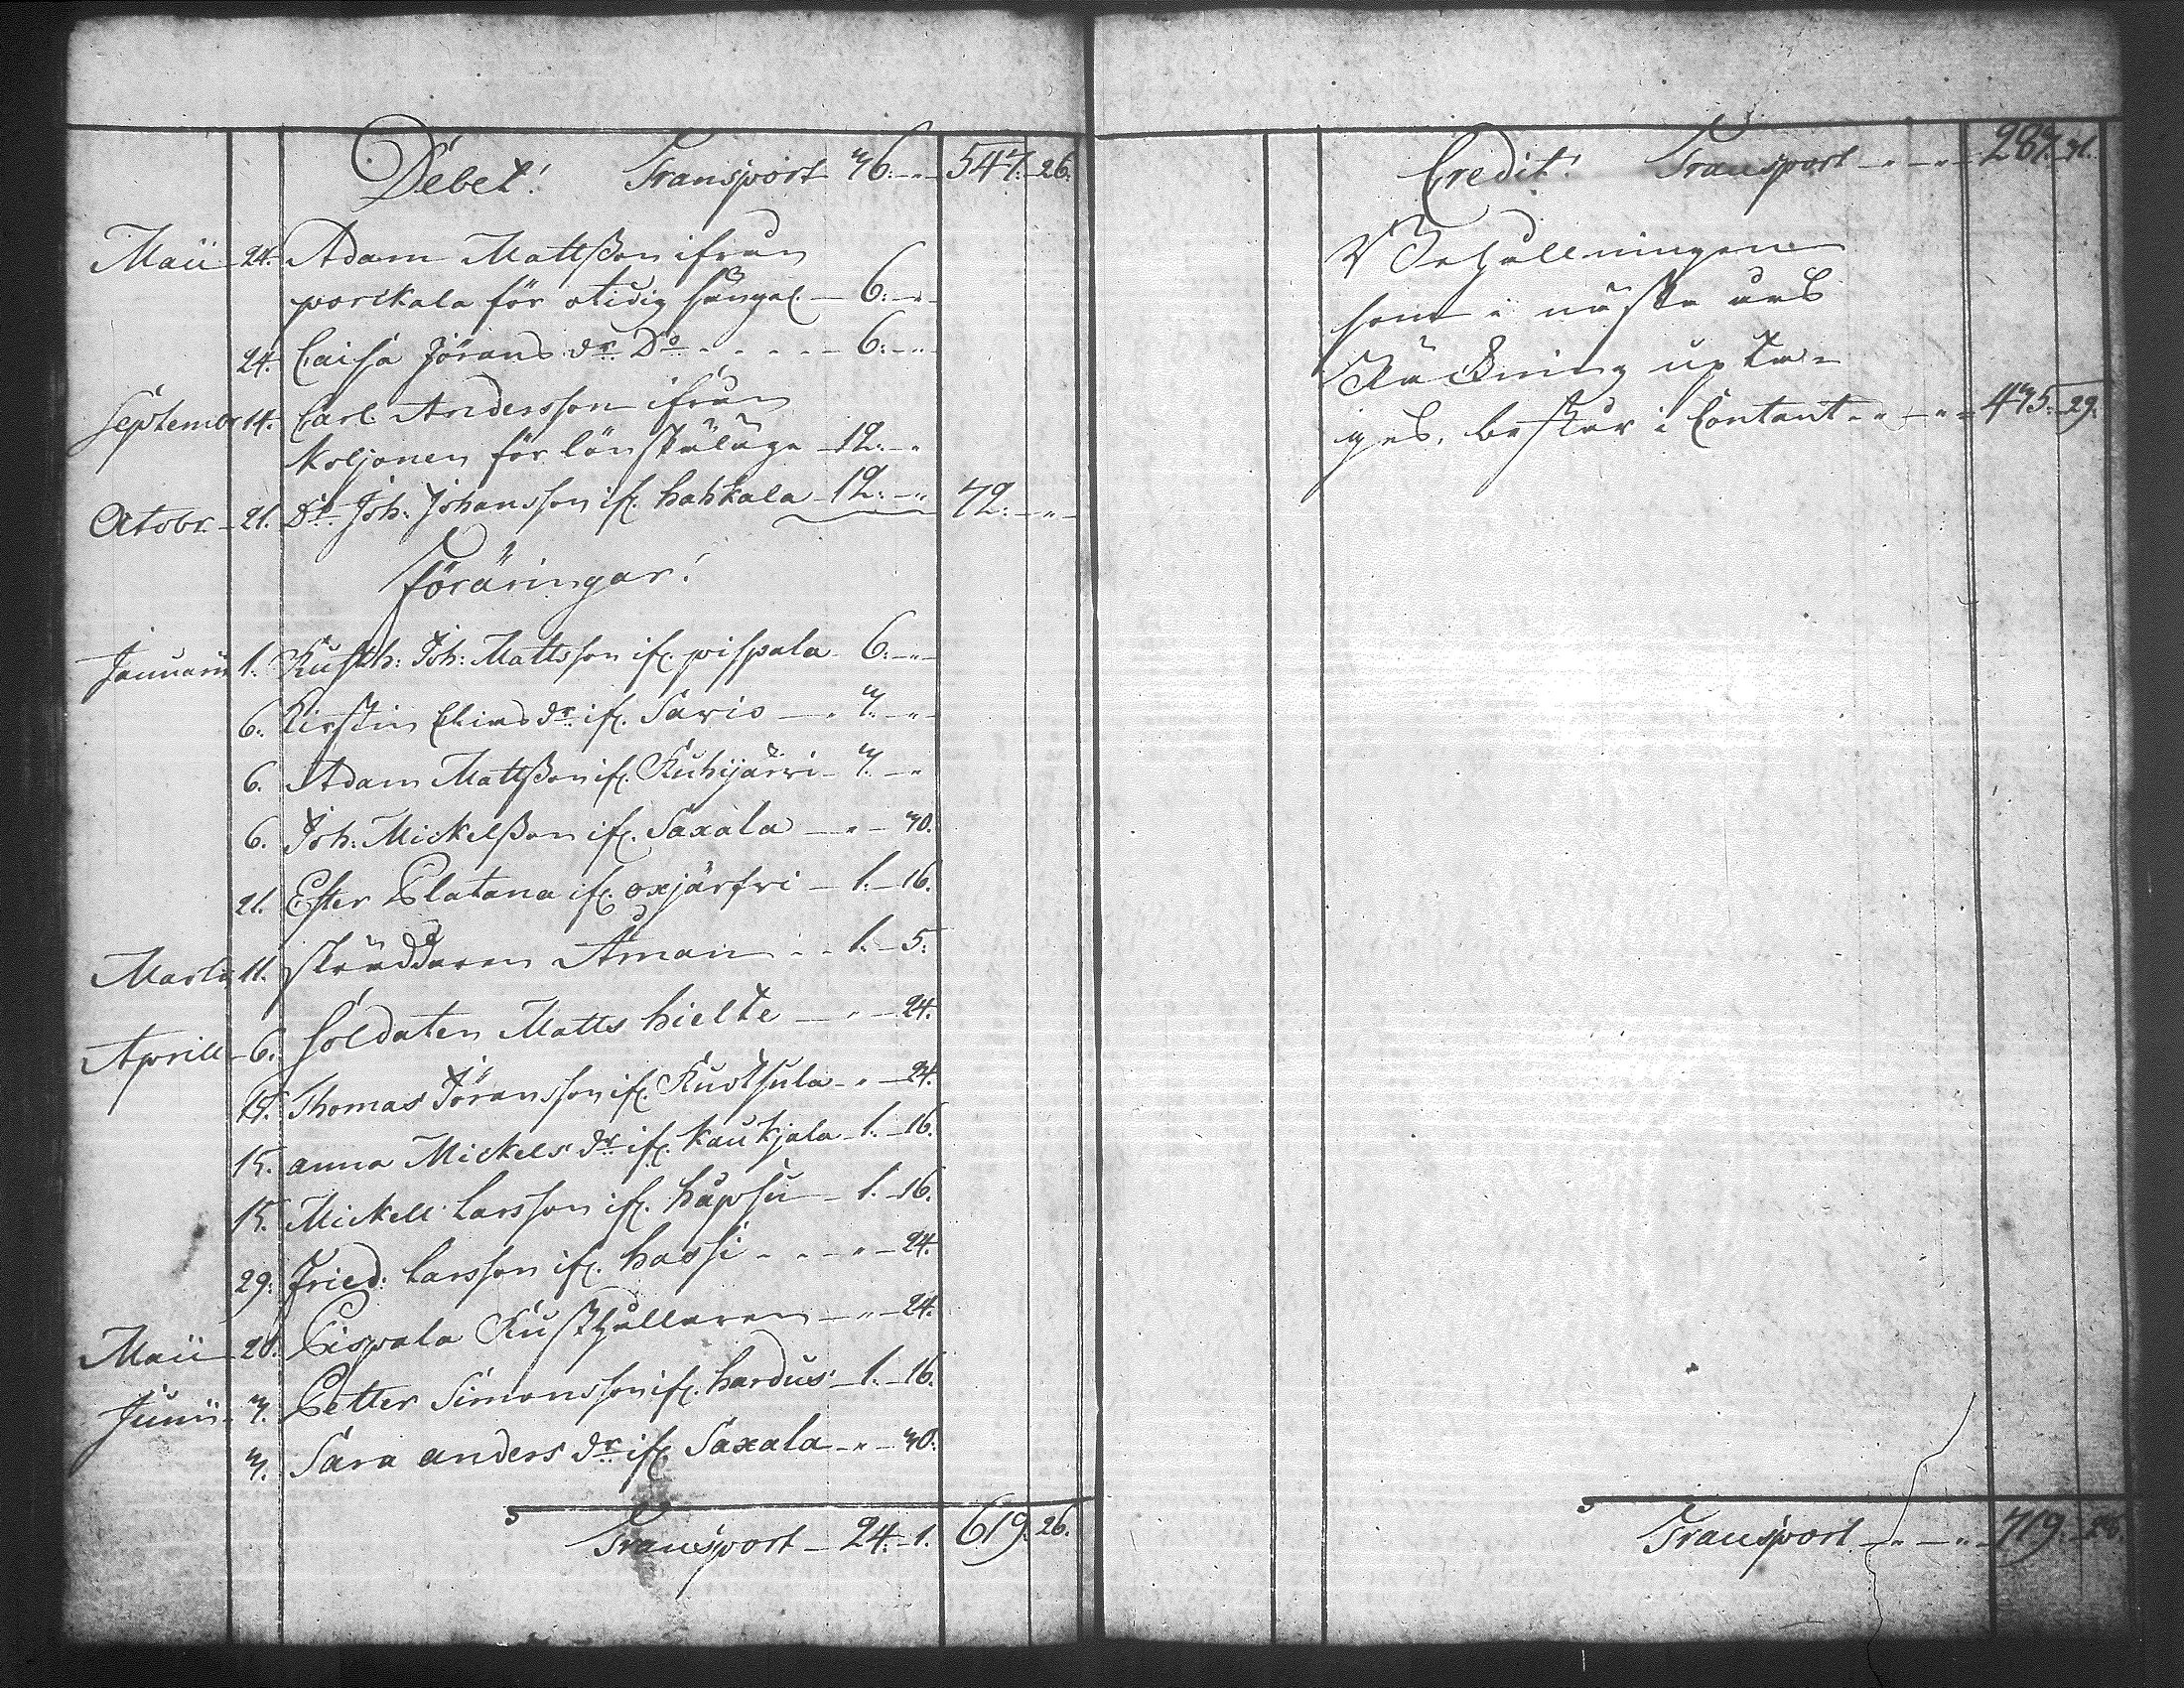 Debet! Transport 36. " 547. 26.
Maii 24. Adam Mattsson ifrån
porikala för otidig sängel. 6. "
24. Caisa Jörans dr Do 6. "
Septembr 14. Carl Andersson ifrån
Koljonen för lönskaläge 12. "
Octobr. 21. Do Joh: Johansson if. hahkala 12. " 72. "
Föräringar!
Januarii 1. Rusth: Joh: Mattsson if. pispala 6. "
6. Kirstin Elias dr if. Sario 3. "
6. Adam Mattsson if. Kuhijärri 3. "
6. Joh. Mickelsson if. Saxala " 30.
21. Efter Platana if. oxjärfvi 1. 16.
Martii 11. skräddaren Åman 1. 5.
Aprill 6. Soldaten Matts hielte " 24.
15. Thomas Jöransson if. Kuotsula " 24.
15. anna Mickels dr if. kaukjala 1. 16.
15. Mickell Larsson if. hapsu 1. 16.
29. Fried: Larsson if. hassi " 24.
Maii 20. Pispala Rusthållaren " 24.
Junii 3. Petter Simonsson if. hardus 1. 16.
3. Sara anders dr if. Saxala " 30.
Transport 24. 1. 619. 26.
Credit! Transport " " 283. 31.
Behållningen
som i nästa års
Räckning upta-
ges, består i Contant " " 435. 29.
Transport " " 719. 28.